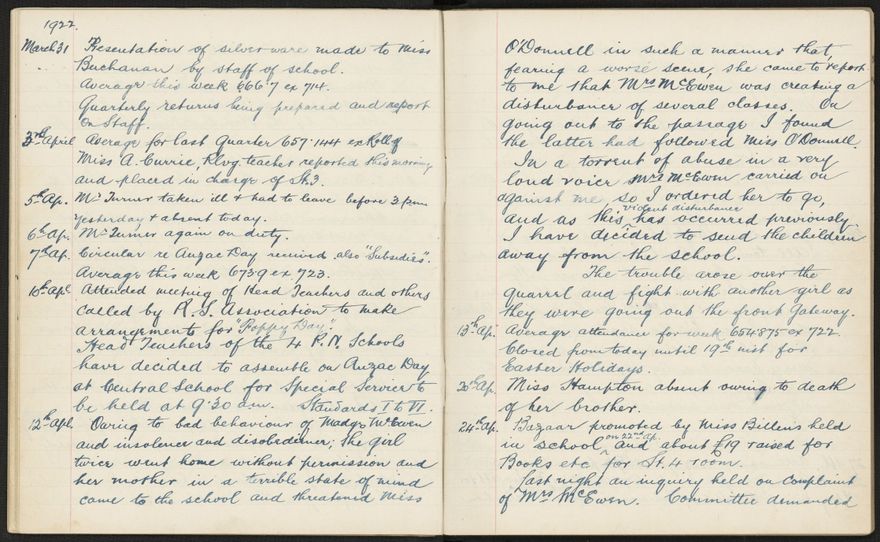 1922.
March 31 Presentation of silverware made to Miss
Buchanan by staff of school.
Average this week 666·7 ex 714.
Quarterly returns being prepared and report
on Staff.
3rd April Average for last Quarter 657·144 ex Roll of
Miss A. Currie, Rlvg teacher reported this morning
and placed in charge of St. 3.
5th Ap. Mr Turner taken ill & had to leave before 3 p.m
yesterday & absent today.
6th Ap. Mr Turner again on duty.
7th Ap. Circular re Anzac Day received also "Subsidies".
Average this week 673·9 ex 723.
10th Apl Attended meeting of Head Teachers and others
called by R.S. Association to make
arrangements for "Poppy Day".
Head Teachers of the 4 P.N. Schools
have decided to assemble on Anzac Day
at Central School for Special Service to
be held at 9·30 am. Standards I to VI.
12th Apl. Owing to bad behaviour of Madge McEwen
and insolence and disobedience; the girl
twice went home without permission and
her mother in a terrible state of mind
came to the school and threatened Miss
O'Donnell in such a manner that,
fearing a worse scene, she came to report
to me that Mrs McEwen was creating a
disturbance of several classes. On
going out to the passage I found
the latter had followed Miss O'Donnell.
In a torrent of abuse in a very
loud voice Mrs McEwen carried on
against me, so I ordered her to go,
and as this violent disturbance has occurred previously
I have decided to send the children
away from the school.
The trouble arose over the
quarrel and fight with another girl as
they were going out the front Gateway.
13th Ap. Average attendance for week 654·875 ex 722
Closed from today until 19th inst for
Easter Holidays.
20th Ap. Miss Hampton absent owing to death
of her brother.
24th Ap. Bazaar promoted by Miss Billens held
in school on 22nd Ap. and about £19 raised for
Books etc for St. 4 room.
Last night an inquiry held on complaint
of Mrs McEwen. Committee demanded